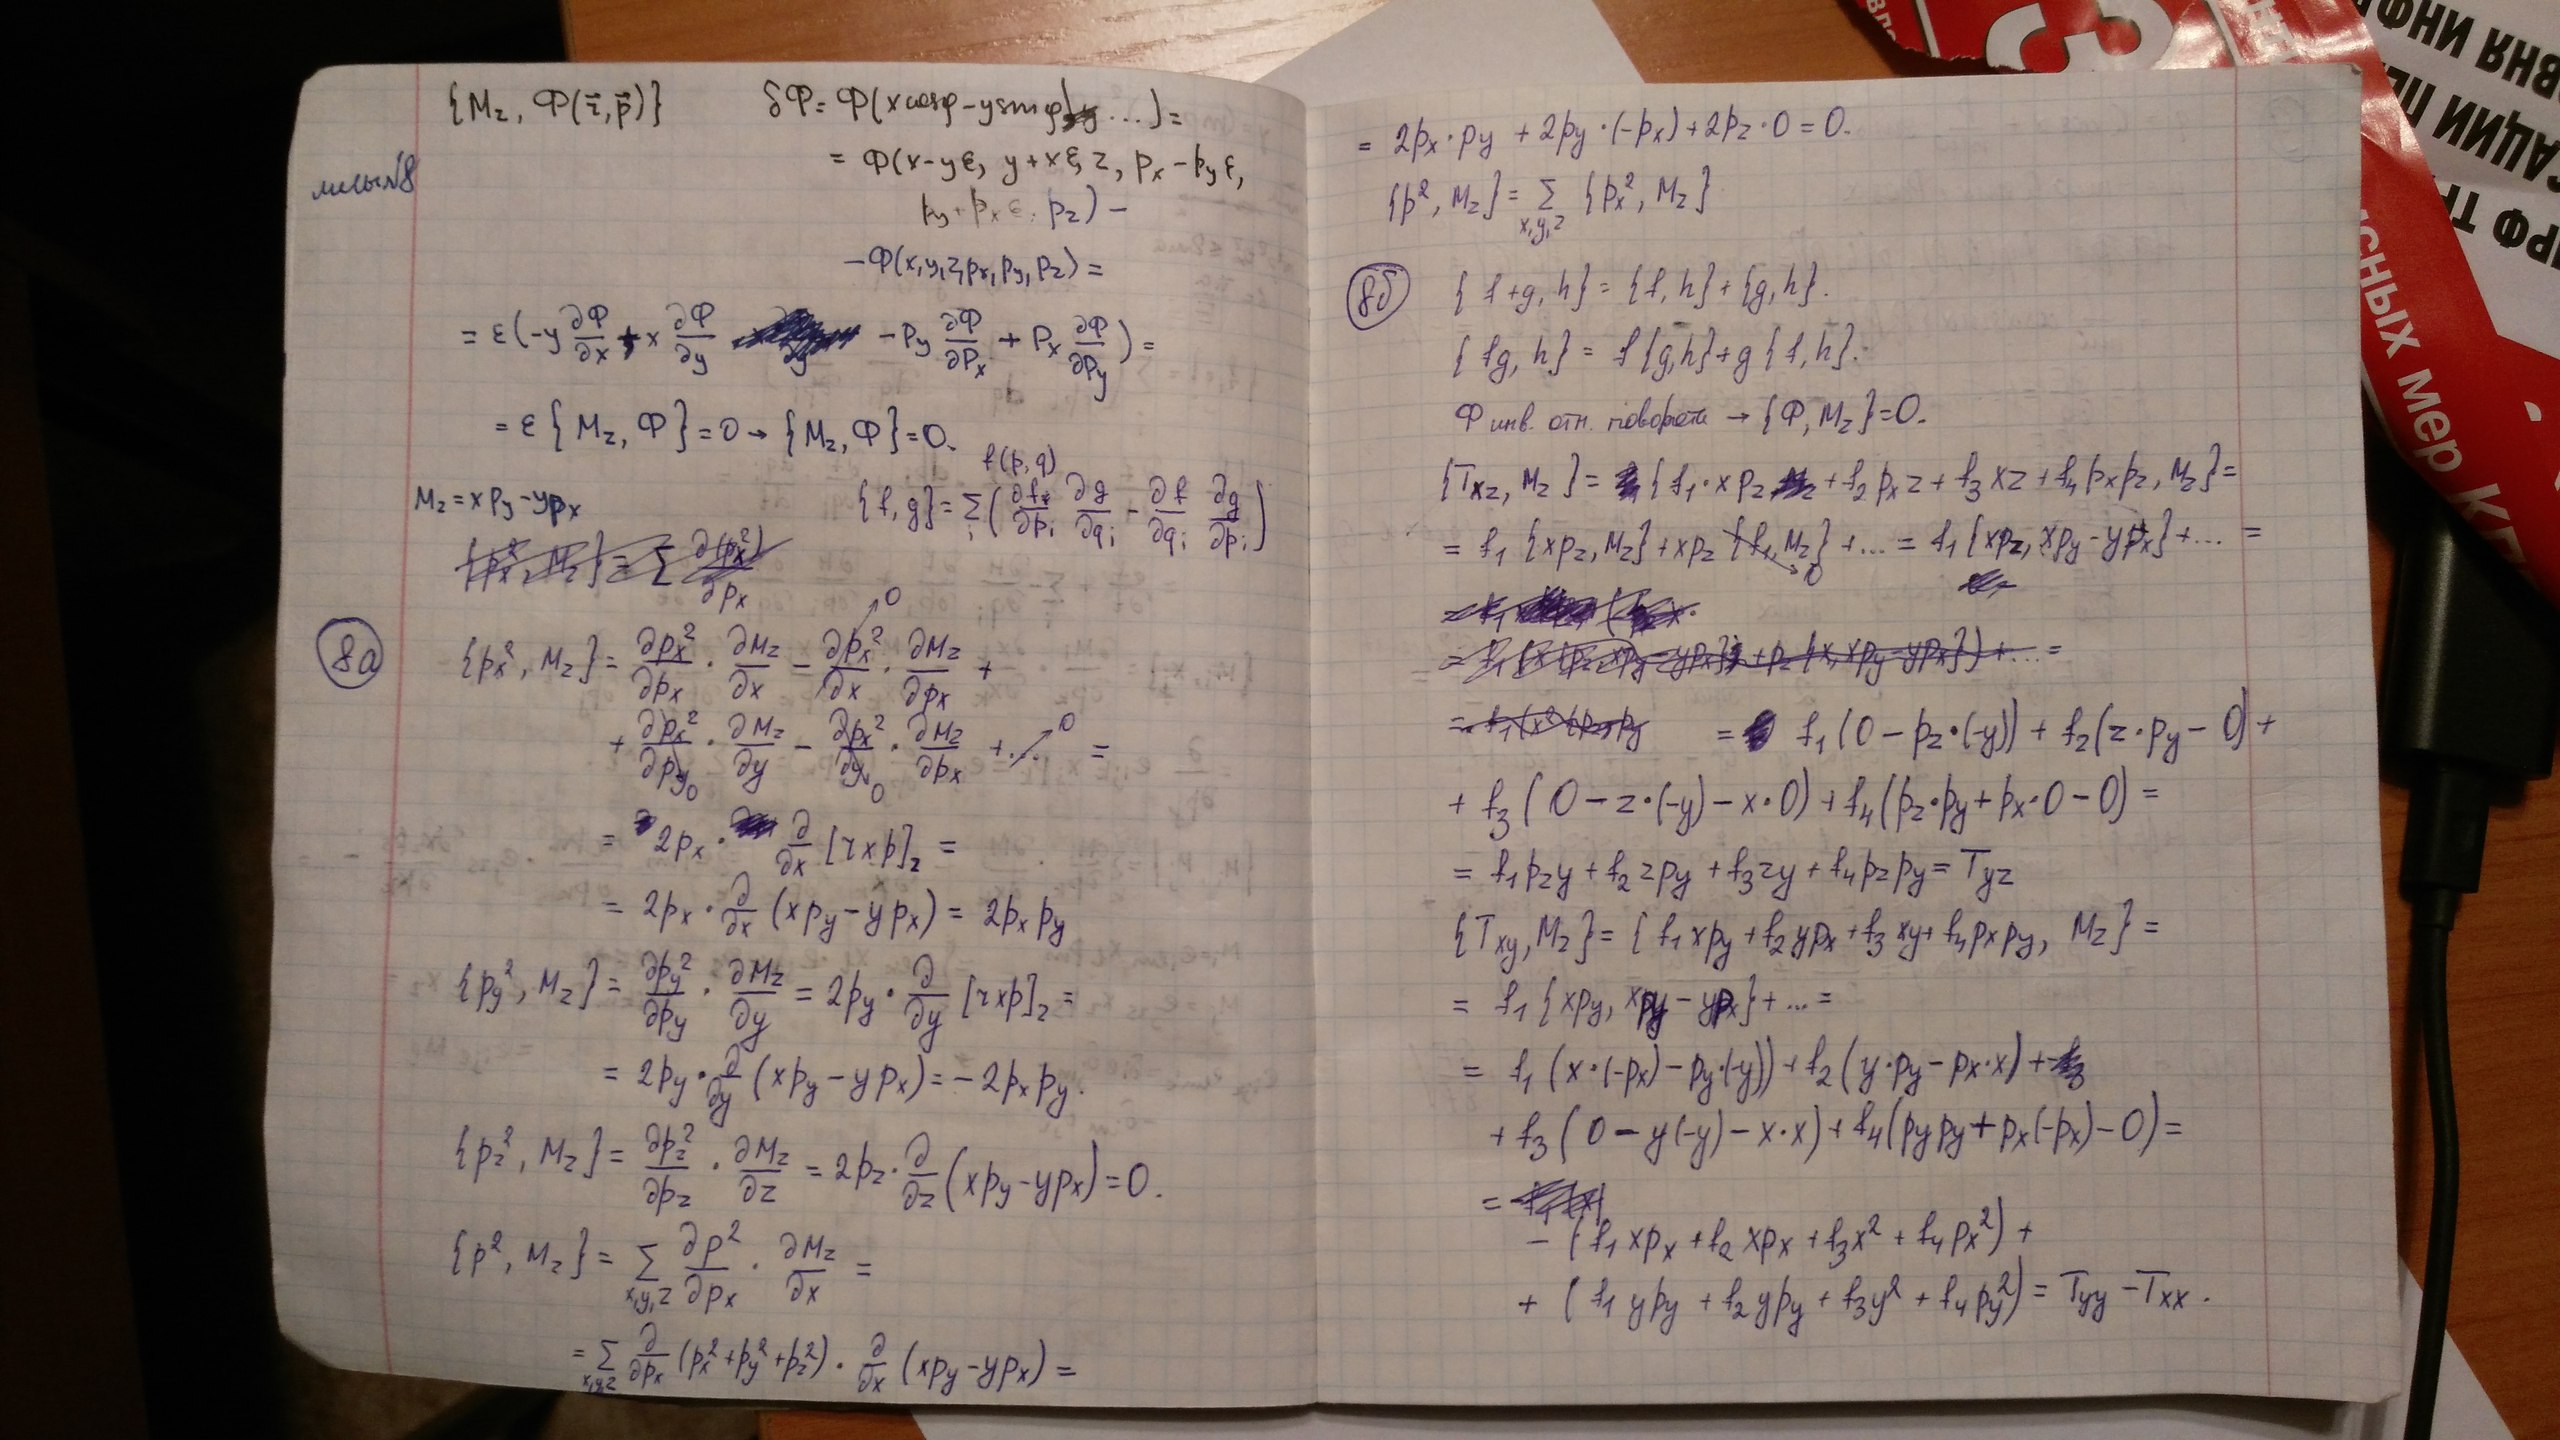 {M_z, Ф(r⃗,p⃗)} δФ = Ф(x cosφ − y sinφ, ...) =
= Ф(x−yε, y+xε, z, p_x − p_y ε,
p_y + p_x ε, p_z) −
− Ф(x,y,z,p_x,p_y,p_z) =
= ε(−y ∂Ф/∂x + x ∂Ф/∂y − p_y ∂Ф/∂p_x + p_x ∂Ф/∂p_y) =
= ε{M_z, Ф} = 0 → {M_z, Ф} = 0.
f(p,q)
M_z = xp_y − yp_x {f,g} = Σ_i (∂f/∂p_i ∂g/∂q_i − ∂f/∂q_i ∂g/∂p_i)
8а {p_x², M_z} = ∂p_x²/∂p_x · ∂M_z/∂x − ∂p_x²/∂x → 0 · ∂M_z/∂p_x +
+ ∂p_x²/∂p_y 0 · ∂M_z/∂y − ∂p_x²/∂y 0 · ∂M_z/∂p_x + ... → 0 =
= 2p_x · ∂/∂x [r×p]_z =
= 2p_x · ∂/∂x (xp_y − yp_x) = 2p_x p_y
{p_y², M_z} = ∂p_y²/∂p_y · ∂M_z/∂y = 2p_y · ∂/∂y [r×p]_z =
= 2p_y · ∂/∂y (xp_y − yp_x) = −2p_x p_y.
{p_z², M_z} = ∂p_z²/∂p_z · ∂M_z/∂z = 2p_z · ∂/∂z (xp_y − yp_x) = 0.
{p², M_z} = Σ_{x,y,z} ∂p²/∂p_x · ∂M_z/∂x =
= Σ_{x,y,z} ∂/∂p_x (p_x² + p_y² + p_z²) · ∂/∂x (xp_y − yp_x) =
= 2p_x·p_y + 2p_y·(−p_x) + 2p_z·0 = 0.
{p², M_z} = Σ_{x,y,z} {p_x², M_z}
8б {f+g, h} = {f,h} + {g,h}.
{fg, h} = f{g,h} + g{f,h}.
Ф инв. отн. поворота → {Ф, M_z} = 0.
{T_xz, M_z} = {f₁·xp_z + f₂p_x z + f₃xz + f₄p_x p_z, M_z} =
= f₁{xp_z, M_z} + xp_z{f₁,M_z} → 0 + ... = f₁{xp_z, xp_y − yp_x} + ... =
= f₁(0 − p_z·(−y)) + f₂(z·p_y − 0) +
+ f₃(0 − z·(−y) − x·0) + f₄(p_z·p_y + p_x·0 − 0) =
= f₁p_z y + f₂zp_y + f₃zy + f₄p_z p_y = T_yz
{T_xy, M_z} = {f₁xp_y + f₂yp_x + f₃xy + f₄p_x p_y, M_z} =
= f₁{xp_y, xp_y − yp_x} + ... =
= f₁(x·(−p_x) − p_y·(−y)) + f₂(y·p_y − p_x·x) +
+ f₃(0 − y(−y) − x·x) + f₄(p_y p_y + p_x(−p_x) − 0) =
= − (f₁xp_x + f₂xp_x + f₃x² + f₄p_x²) +
+ (f₁yp_y + f₂yp_y + f₃y² + f₄p_y²) = T_yy − T_xx.
СНЫХ мер